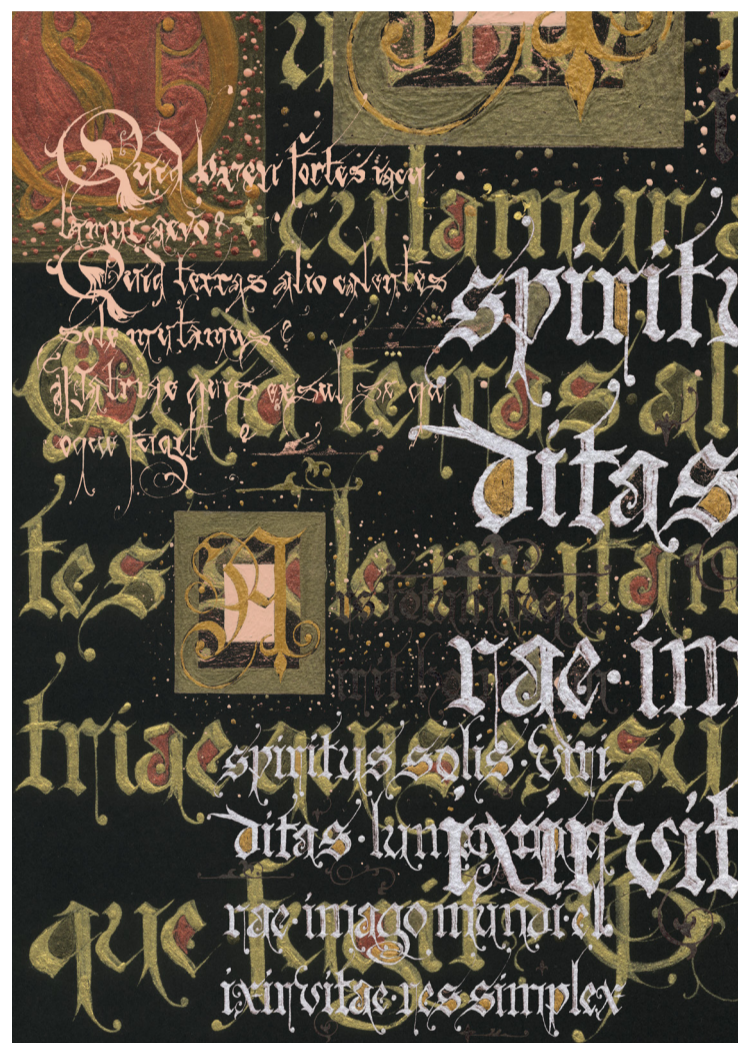 Quid breui fortes iacu
lamur aevo?
Quid terras alio calentes
sole mutamus?
Patriae quis exsul se qu
oque fugit?
culamur a
Quid terras al
tes sole mutam
triae quis exsu
que fugit
spiritu
ditas
rae · im
ixir vit
spiritus solis · viri
ditas · lum
rae · imago mundi · el
ixir vitae · res simplex